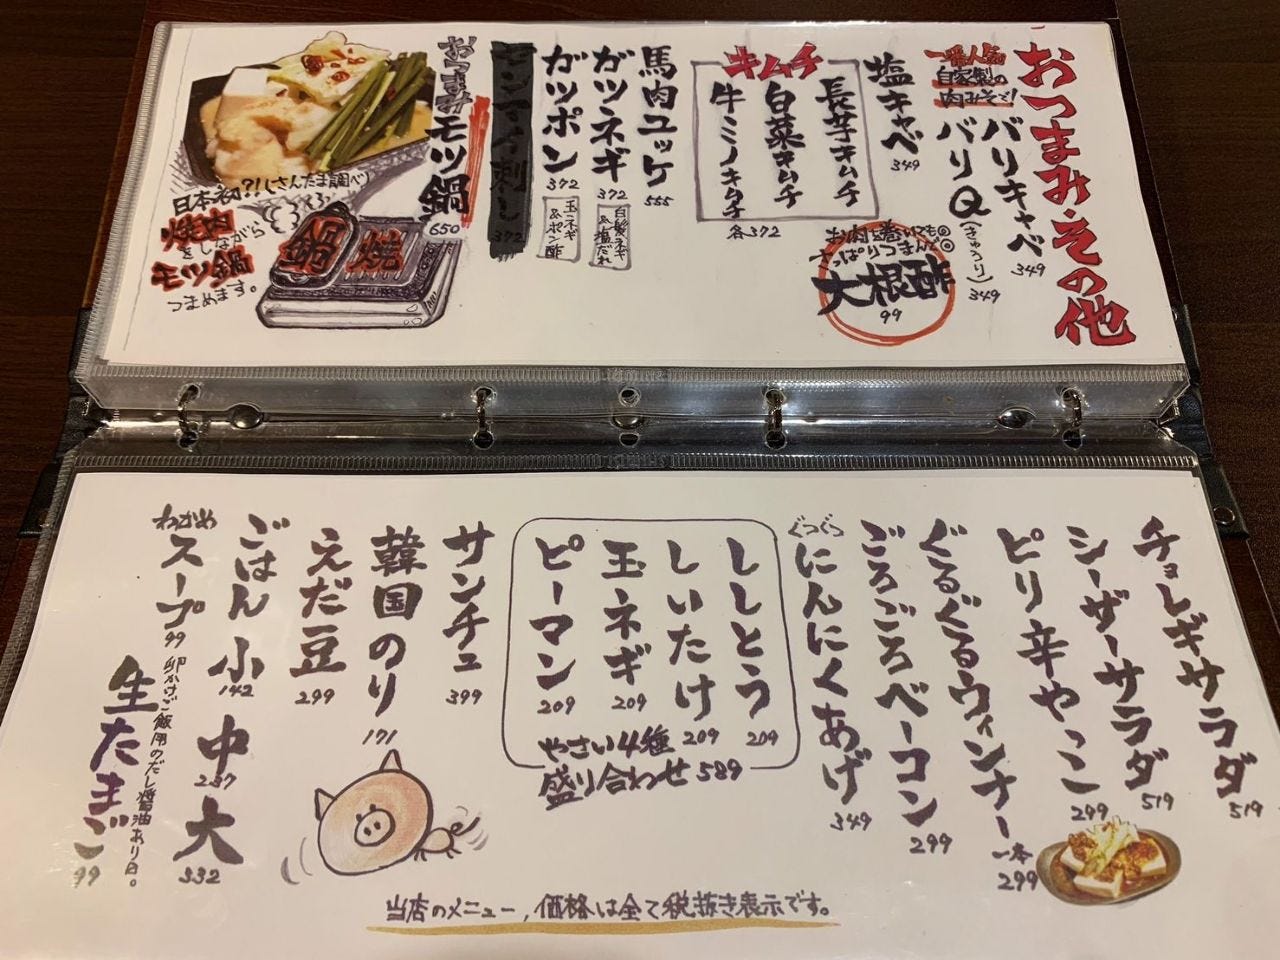 おつまみ・その他
一番人気
自家製の
肉みそ!
バリキャベ
349
バリQ(きゅうり)
349
塩キャベ
349
キムチ
長芋キムチ
白菜キムチ
牛ミノキムチ
各372
お肉を巻いても◎
さっぱりつまんでも◎
大根酢
99
馬肉ユッケ
555
ガツネギ
372
白髪ネギ
&塩だれ
ガツポン
372
玉ネギ
&ポン酢
センマイ刺し
372
おつまみモツ鍋
650
日本初?!(さんたま調べ)
焼肉
をしながら
モツ鍋
つまめます。
鍋
焼
チョレギサラダ
519
シーザーサラダ
519
ピリ辛やっこ
299
ぐるぐるウィンナー
一本
299
ごろごろベーコン
299
ぐつぐつ
にんにくあげ
349
ししとう
209
しいたけ
209
玉ネギ
209
ピーマン
209
やさい4種
盛り合わせ 589
サンチュ
399
韓国のり
171
えだ豆
299
ごはん 小
142
中
237
大
332
わかめ
スープ
99
卵かけご飯用のだし醤油あり〼。
生たまご
99
当店のメニュー,価格は全て税抜き表示です。